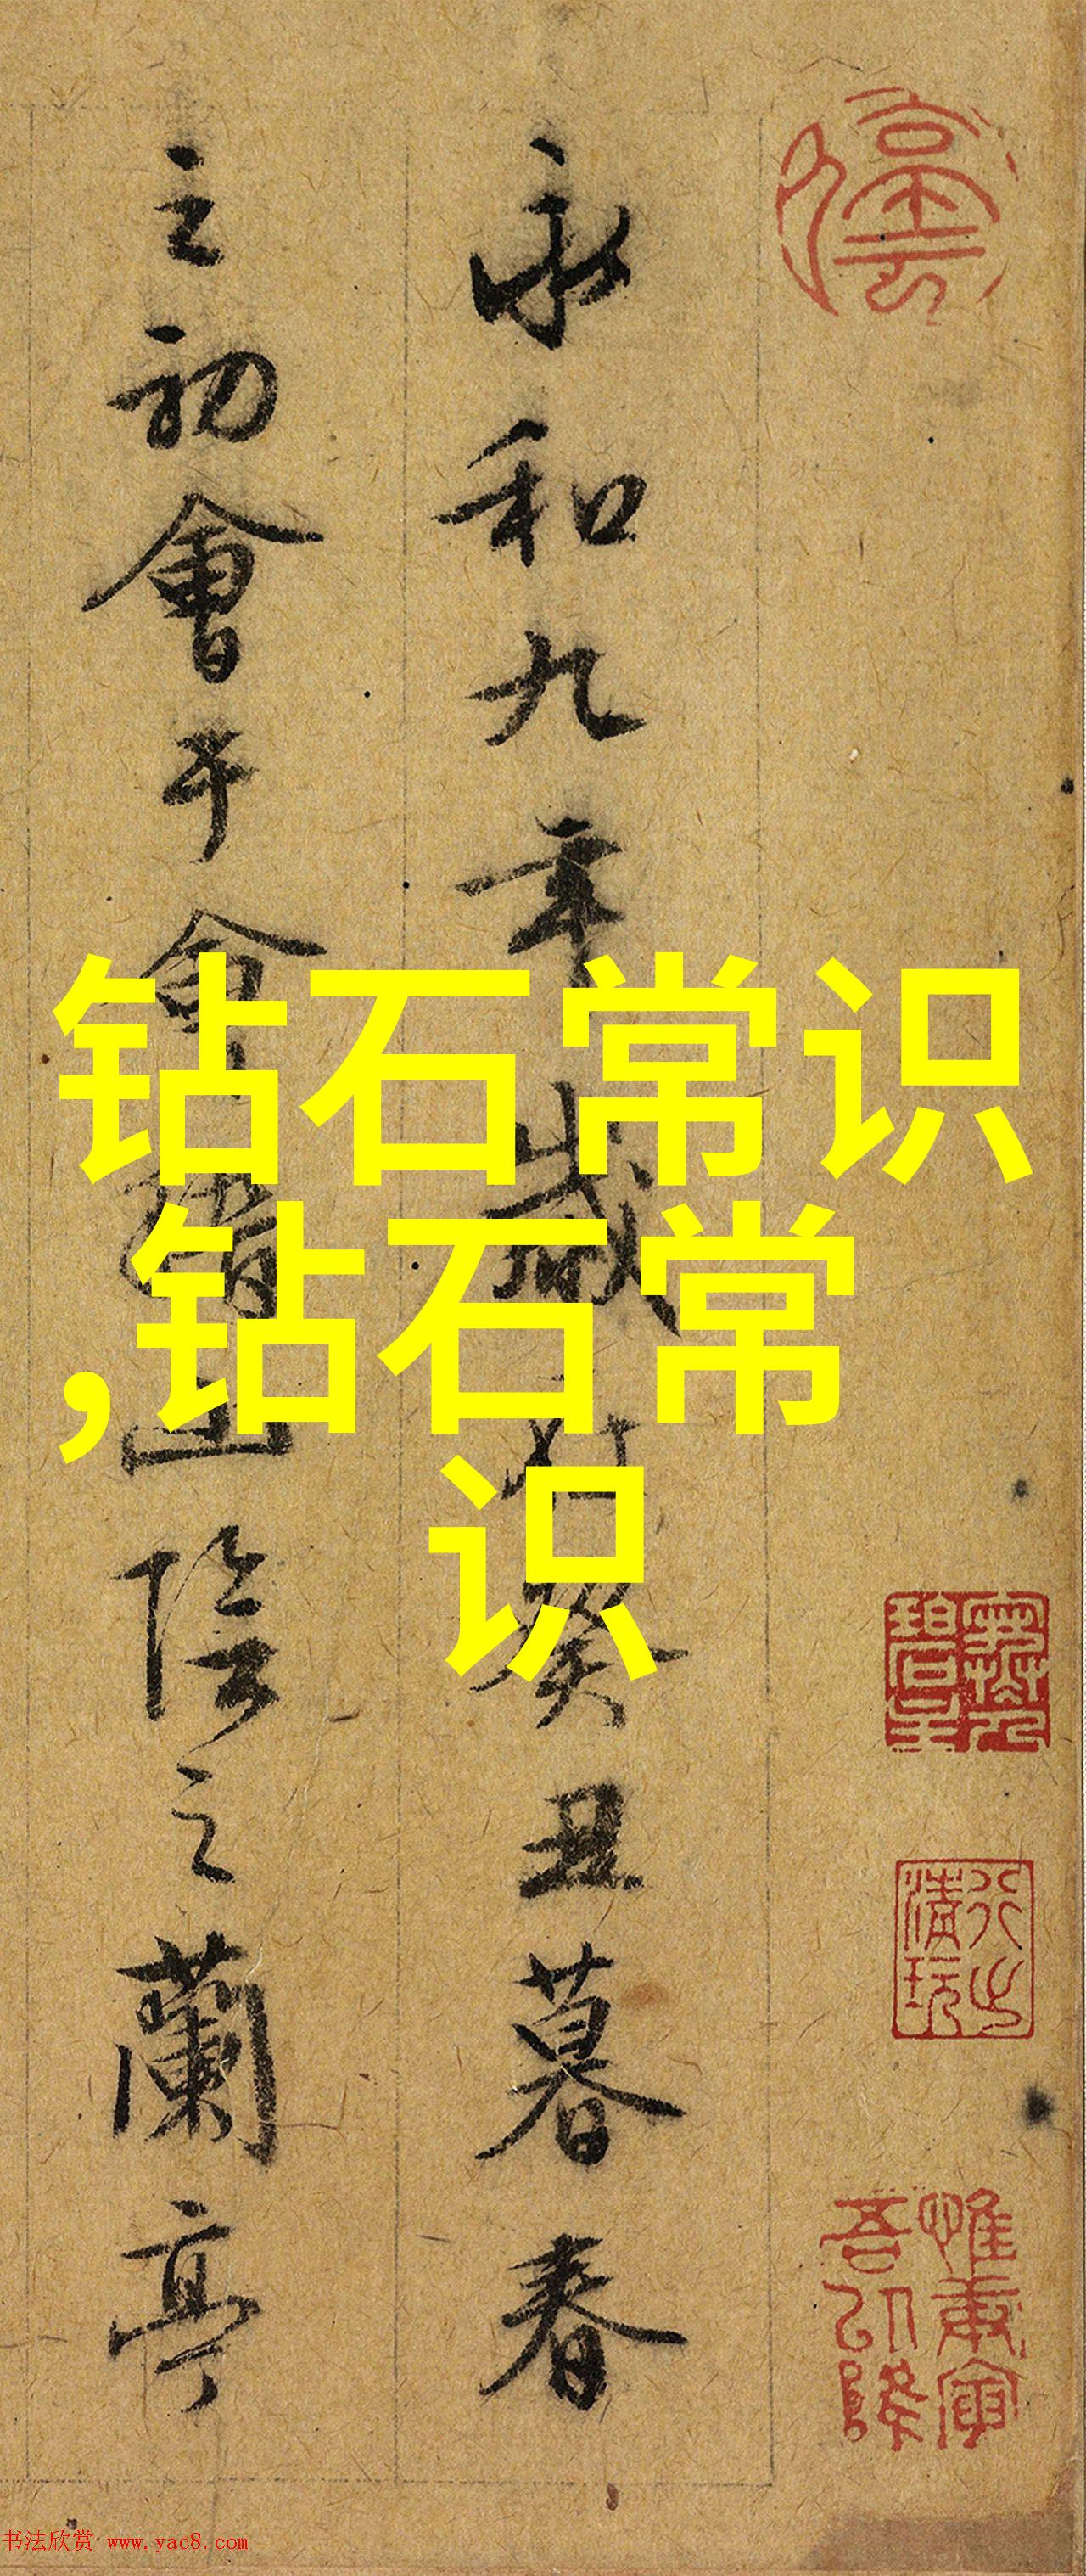 钻石常识
,钻石常
识
永和九年歲在癸丑暮春
之初會于會稽山陰之蘭亭
清玩
惟庚寅
吾以降
书法欣赏 www.yac8.com